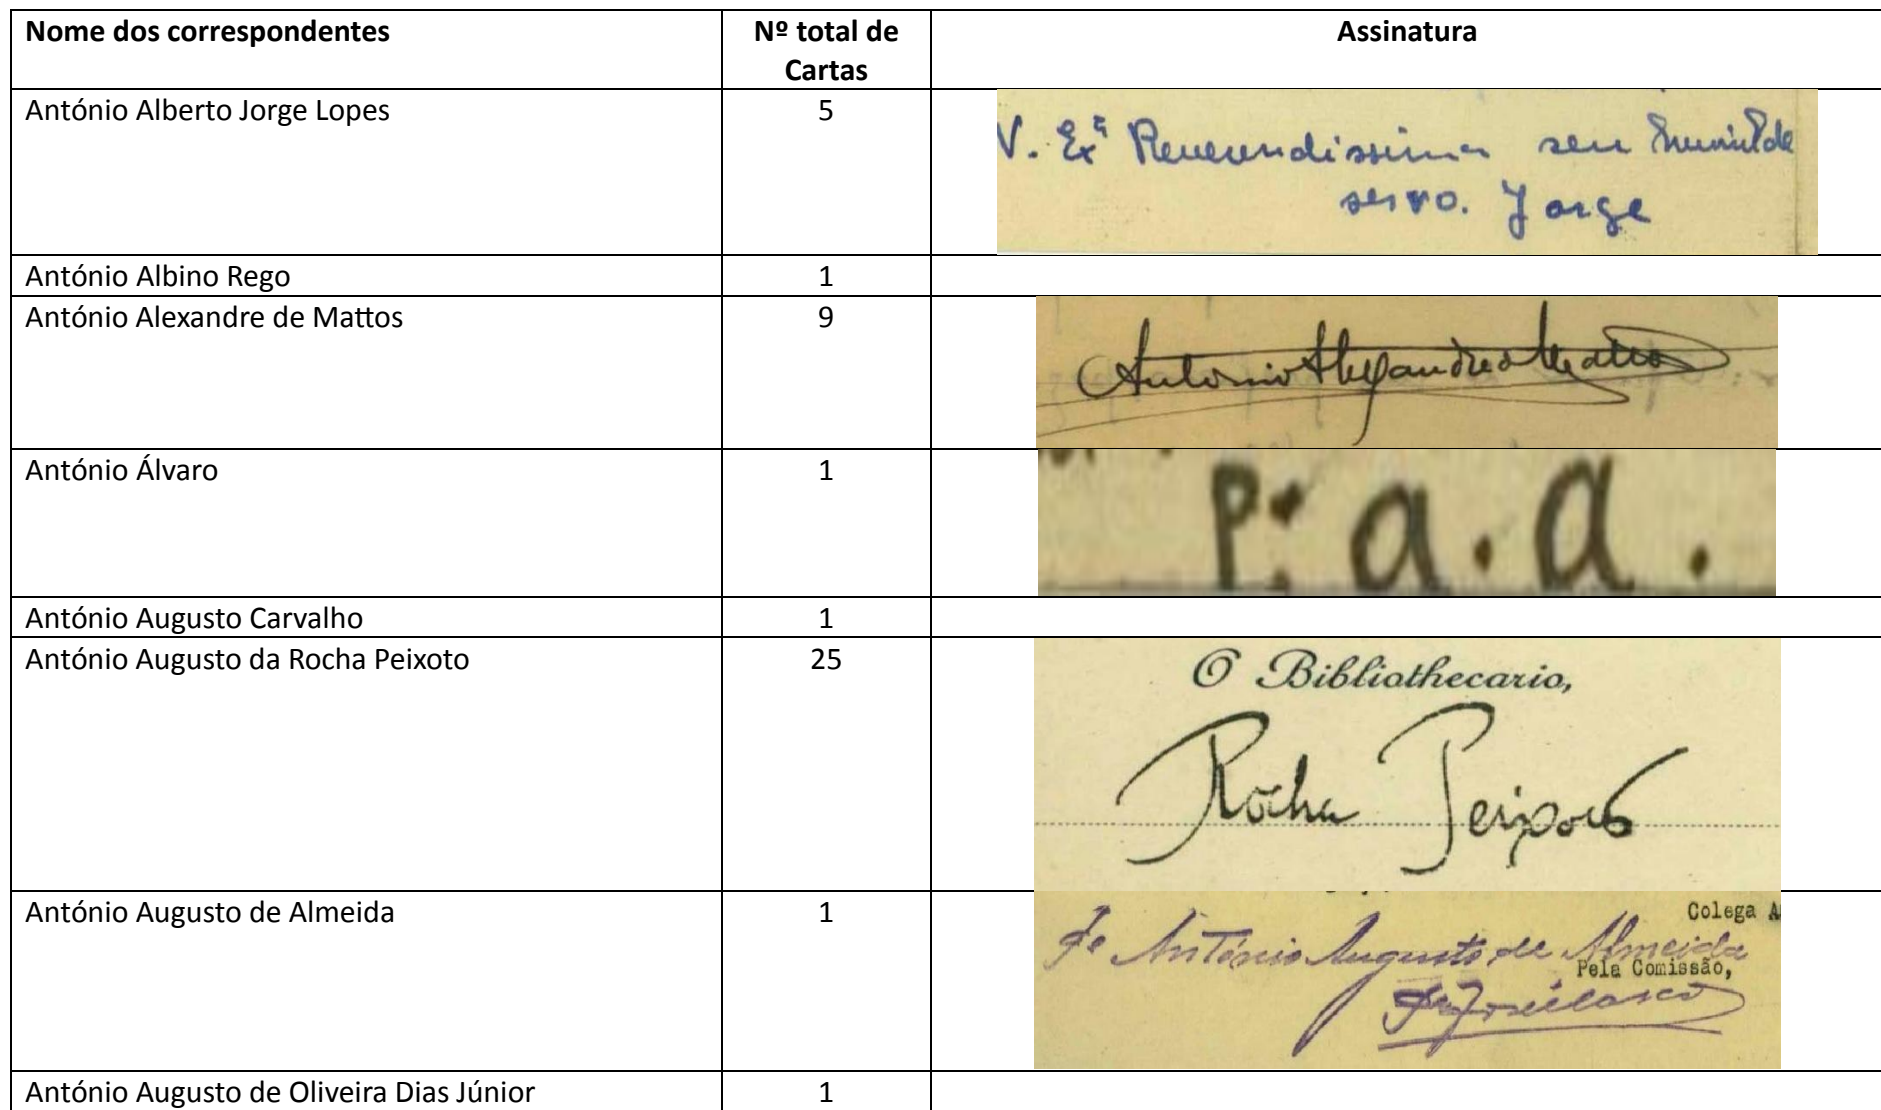 Nome dos correspondentes
Nº total de Cartas
Assinatura
António Alberto Jorge Lopes
5
V. Exª Reverendissima seu humilde
servo. Jorge
António Albino Rego
1
António Alexandre de Mattos
9
Antonio Alexandre de Mattos
António Álvaro
1
P: a. a.
António Augusto Carvalho
1
António Augusto da Rocha Peixoto
25
O Bibliothecario,
Rocha Peixoto
António Augusto de Almeida
1
Colega A
Pe António Augusto de Almeida
Pela Comissão,
António Augusto de Oliveira Dias Júnior
1